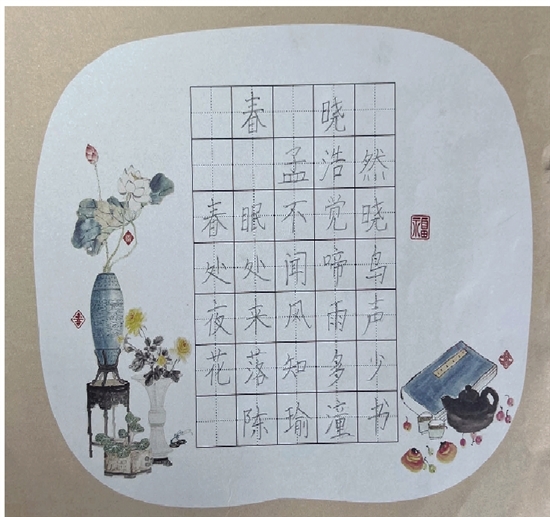 春晓
孟浩然
春眠不觉晓
处处闻啼鸟
夜来风雨声
花落知多少
陈瑜潼书
福